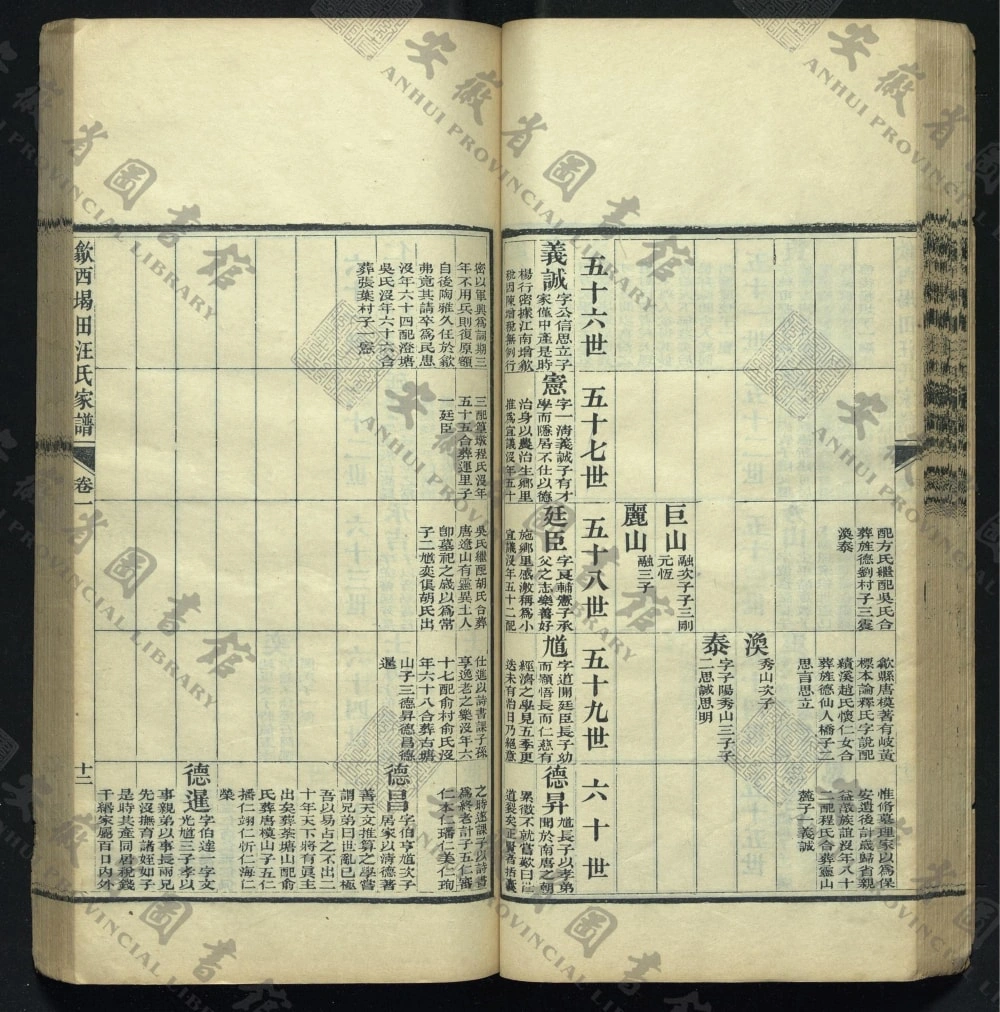 配方氏繼配吳氏合
葬旌德劉村子三震
渙泰
歙縣唐模著有岐黃
標本論釋氏字說配
績溪趙氏懷仁女合
葬旌德仙人橋子二
思言思立
惟脩墓理家以爲保
安遺後計歲歸省親
益敦族誼沒年八十
二配程氏合葬靈山
麓子一義誠
巨山
融次子子三剛
元恆
麗山
融三子
渙
秀山次子
泰
字子陽秀山三子子
二思誠思明
五十六世
五十七世
五十八世
五十九世
六十世
義誠
字公信思立子
家僅中產是時
楊行密據江南增歙
稅因陳增稅無例行
密以軍興爲詞期三
年不用兵則復原額
自後陶雅久任於歙
弗竟其請卒爲民患
沒年六十四配澄塘
吳氏沒年六十六合
葬張葉村子一憲
憲
字一清義誠子有才
學而隱居不仕以德
治身以農治生鄉里
推爲宜議沒年五十
三配篁墩程氏沒年
五十五合葬運里子
一廷臣
廷臣
字良輔憲子承
父之志樂善好
施鄉里感激稱爲小
宜議沒年五十二配
吳氏繼配胡氏合葬
唐遼山有靈異土人
卽墓祀之歲以爲常
子二馗奕俱胡氏出
馗
字道開廷臣長子幼
而頴悟長而仁慈有
經濟之學見五季更
迭未有治日乃絕意
仕進以詩書課子孫
享逸老之樂沒年六
十七配俞村俞氏沒
年六十八合葬古塘
山子三德昇德昌德
暹
德昇
馗長子以孝弟
聞於南唐之朝
累徵不就嘗歎曰世
道裂矣正賢者括囊
之時遂課子以詩書
爲終老計子五仁審
仁本仁璠仁美仁珣
德昌
字伯亨馗次子
居家以清德著
善天文推算之學嘗
謂兄弟曰世亂已極
吾以易占之不出二
十年天下將有眞主
出矣葬荼塘山配俞
氏葬唐模山子五仁
播仁翊仁忻仁海仁
榮
德暹
字伯達一字文
光馗三子孝以
事親弟以事長兩兄
先沒撫育諸姪如子
是時共產同居稅錢
千緡家屬百口內外
歙西堨田汪氏家譜
卷一
十二
安徽省圖書館
ANHUI PROVINCIAL LIBRARY